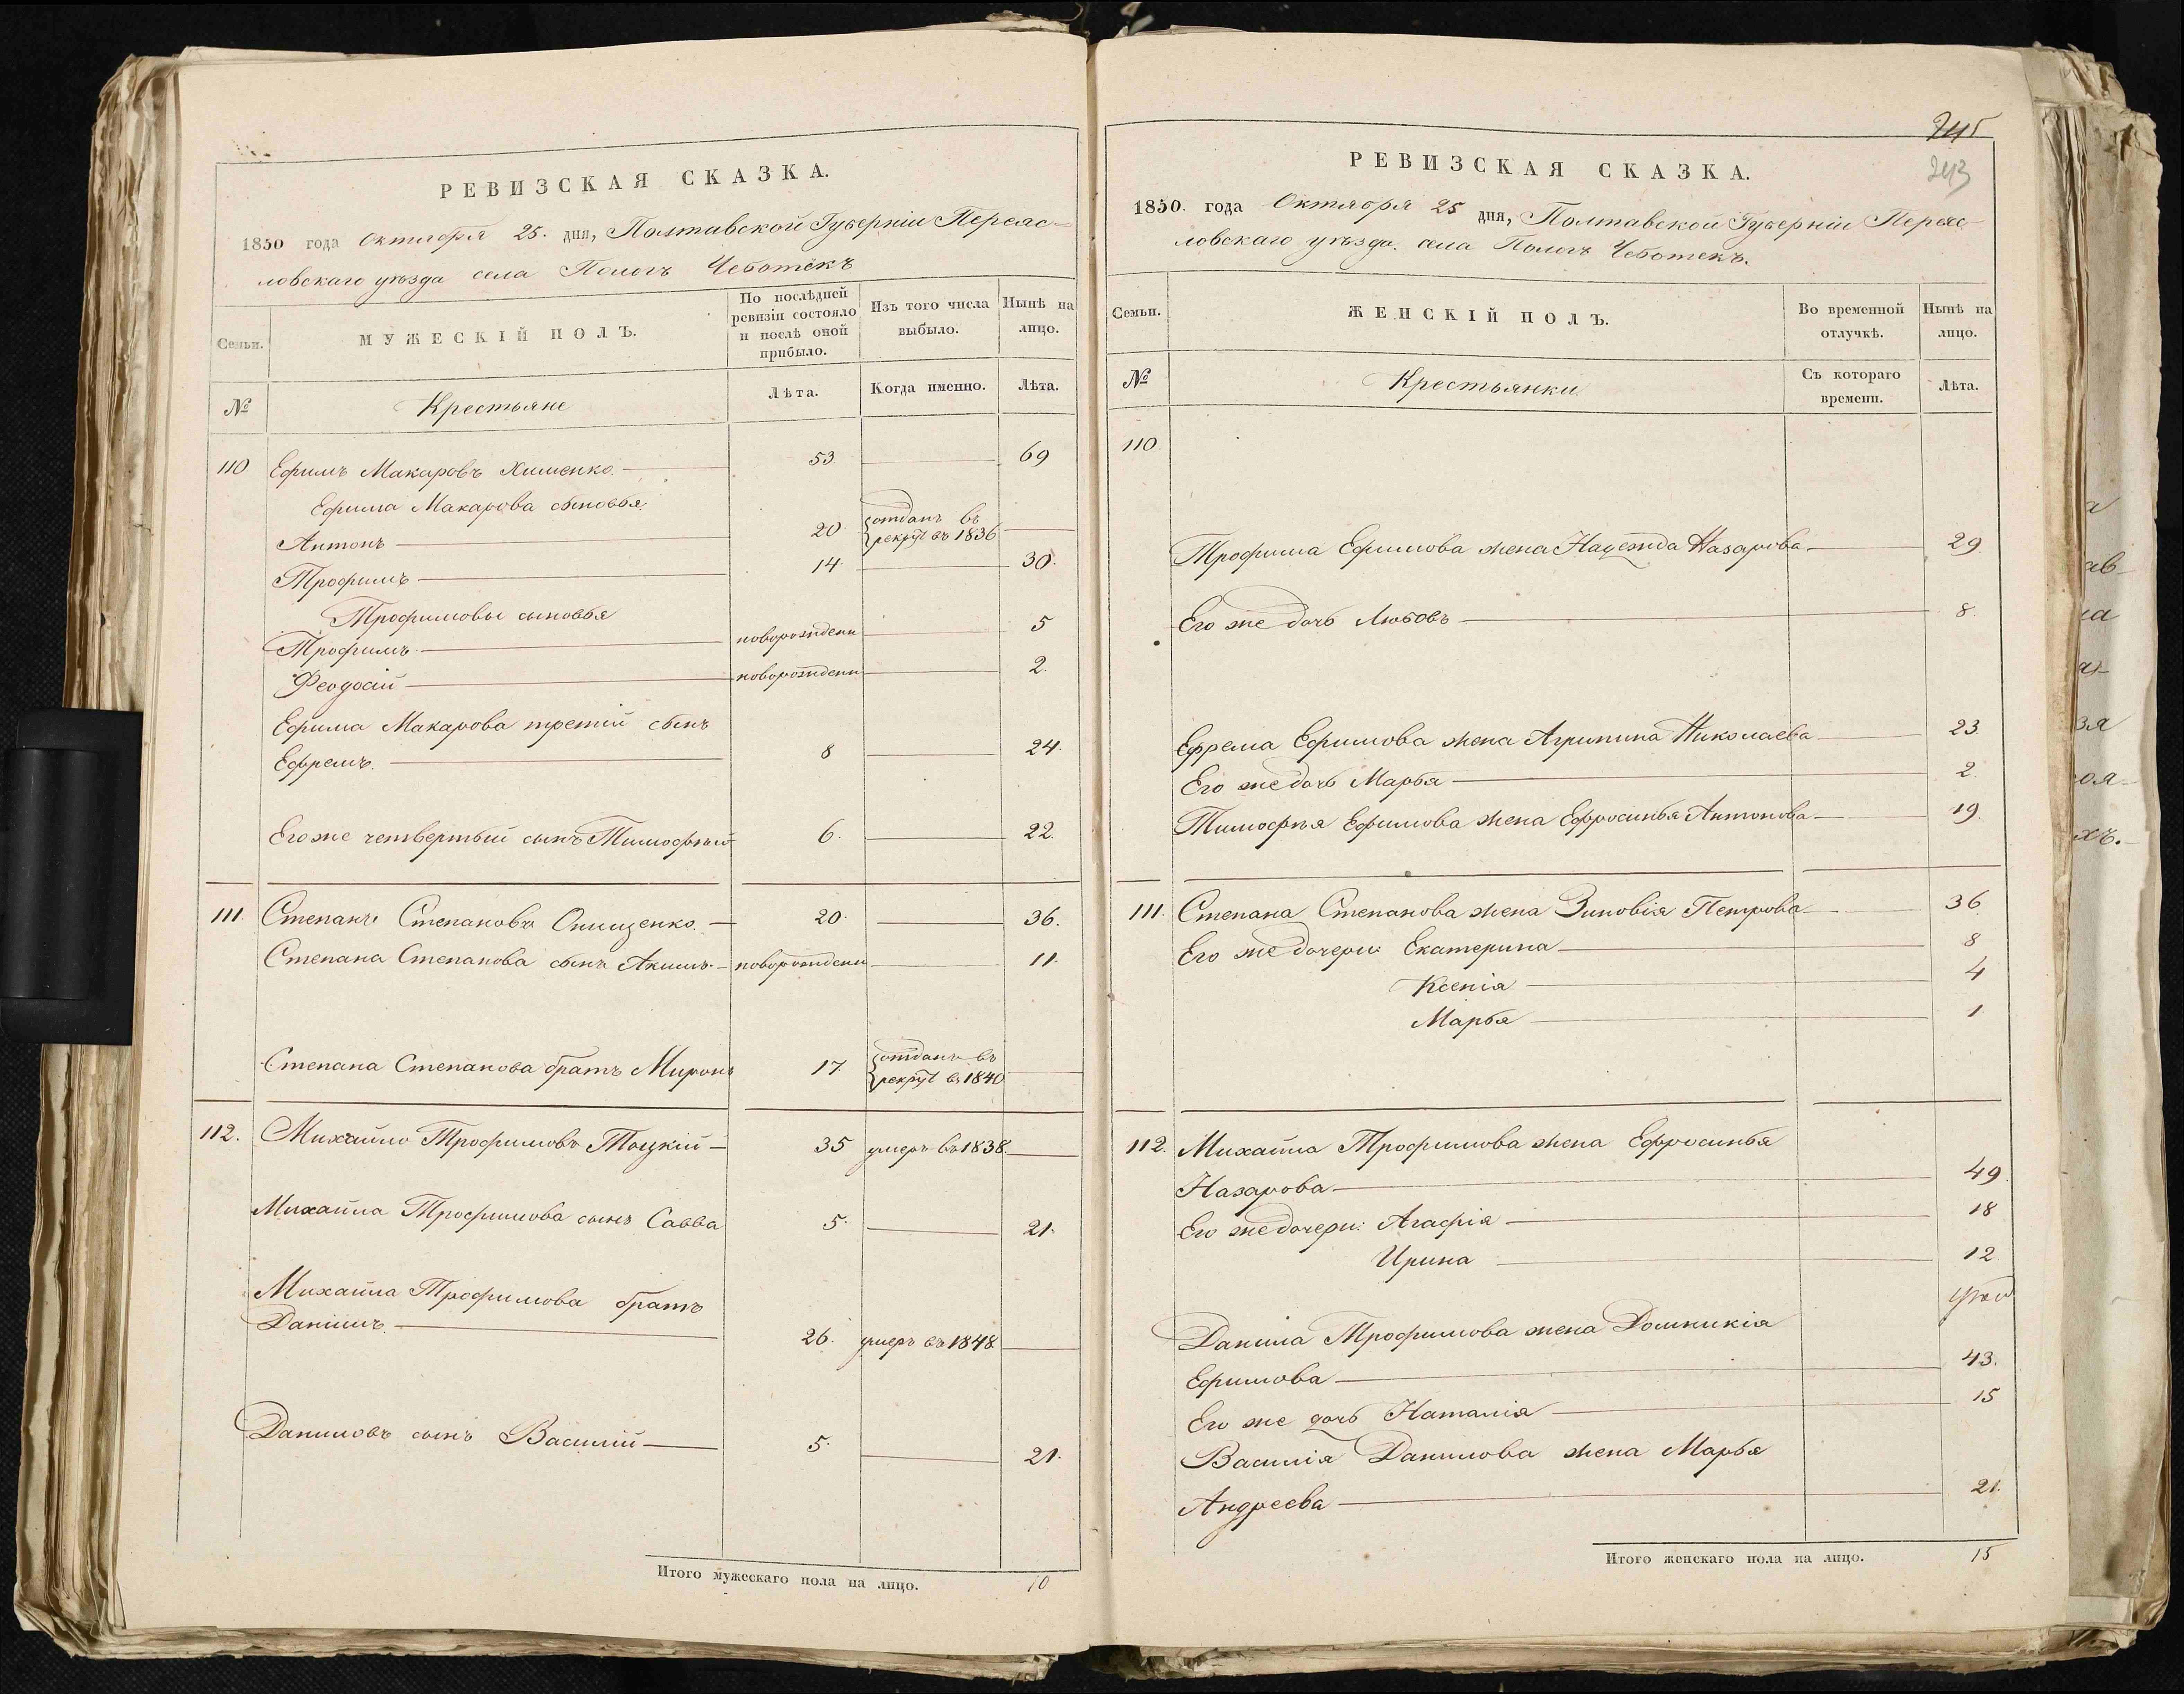 РЕВИЗСКАЯ СКАЗКА.
1850 года Октября 25. дня, Полтавской Губерніи Переяс-
ловскаго уѣзда села Пологъ Чеботекъ
Семьи.
МУЖЕСКІЙ ПОЛЪ.
По послѣдней ревизіи состояло и послѣ оной прибыло.
Изъ того числа выбыло.
Нынѣ на лицо.
№
Крестьяне
Лѣта.
Когда именно.
Лѣта.
110 Ефимъ Макаровъ Хименко 53 69
Ефима Макарова сыновья
Антонъ 20 отданъ въ рекрут въ 1836
Трофимъ 14 30.
Трофимовы сыновья
Трофимъ новорожденн 5
Феодосій новорожденн 2.
Ефима Макарова третій сынъ
Ефремъ. 8 24.
Его же четвертый сынъ Тимофѣй 6. 22.
111. Степанъ Степановъ Онищенко 20 36.
Степана Степанова сынъ Акимъ новорожденн 11.
Степана Степанова братъ Миронъ 17 отданъ въ рекрут въ 1840
112. Михайло Трофимовъ Тоцкій 35 умеръ въ 1838.
Михайла Трофимова сынъ Савва 5. 21.
Михайла Трофимова братъ
Данило. 26. умеръ въ 1848
Даниловъ сынъ Василій 5. 21.
Итого мужескаго пола на лицо. 10
245
243
РЕВИЗСКАЯ СКАЗКА.
1850. года Октября 25 дня, Полтавской Губерніи Переяс-
ловскаго уѣзда. села Пологъ Чеботекъ.
Семьи.
ЖЕНСКІЙ ПОЛЪ.
Во временной отлучкѣ.
Нынѣ на лицо.
№
Крестьянки
Съ котораго времени.
Лѣта.
110
Трофима Ефимова жена Надежда Назарова 29
Его же дочь Любовъ 8.
Ефрема Ефимова жена Агрипина Николаева 23
Его же дочь Марья 2.
Тимофѣя Ефимова жена Ефросинья Антонова 19.
111. Степана Степанова жена Зиновія Петрова 36
Его же дочери: Екатерина 8
Ксенія 4
Марья 1
112. Михайла Трофимова жена Ефросинья
Назарова 49.
Его же дочери: Агафія 18
Ирина 12
Данила Трофимова жена Домникія
Ефимова 43.
Его же дочь Наталія 15
Василія Данилова жена Марья
Андреева 21.
Итого женскаго пола на лицо. 15